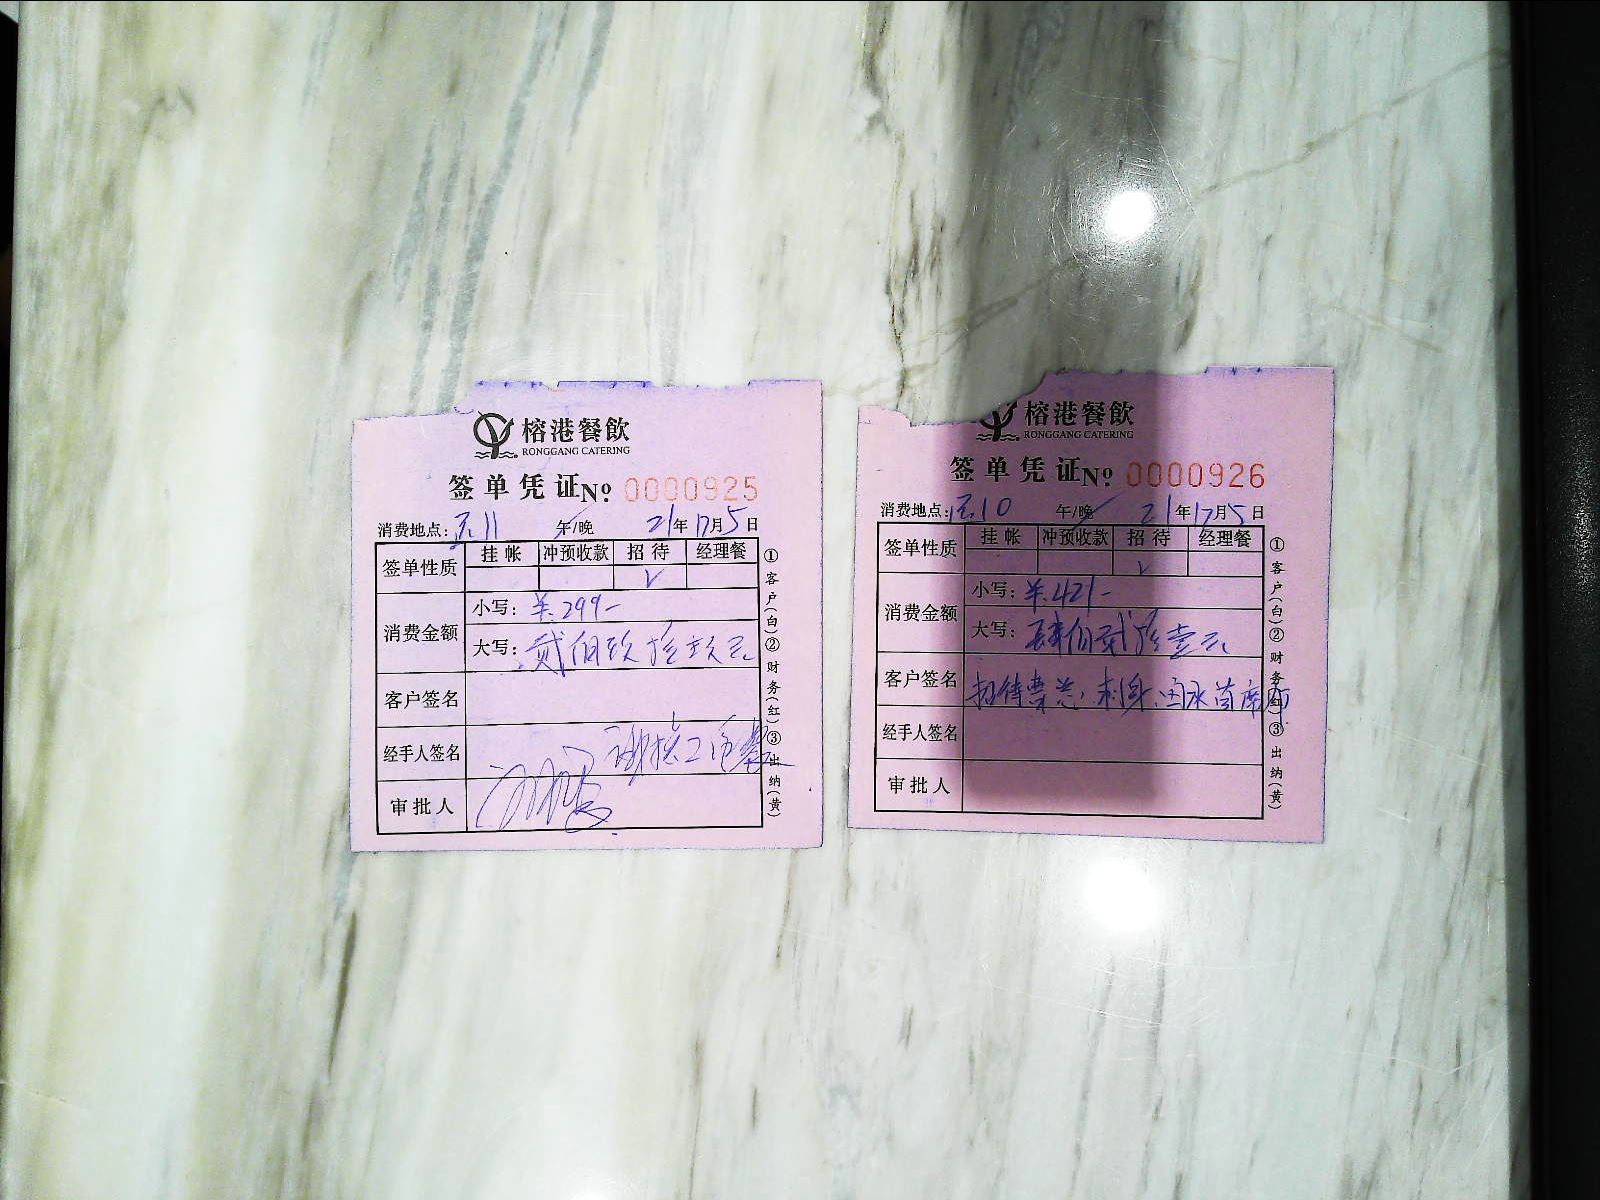 榕港餐飲
RONGGANG CATERING
签单凭证№ 0000925
消费地点: 11 午/晚 21年12月5日
签单性质 挂帐 冲预收款 招待 经理餐
✓
消费金额 小写: ¥299-
大写: 贰佰玖拾玖元
客户签名
经手人签名
审批人
①客户(白)②财务(红)③出纳(黄)
榕港餐飲
RONGGANG CATERING
签单凭证№ 0000926
消费地点: 10 午/晚 21年12月5日
签单性质 挂帐 冲预收款 招待 经理餐
✓
消费金额 小写: ¥421-
大写: 肆佰贰拾壹元
客户签名 招待
经手人签名
审批人
①客户(白)②财务(红)③出纳(黄)